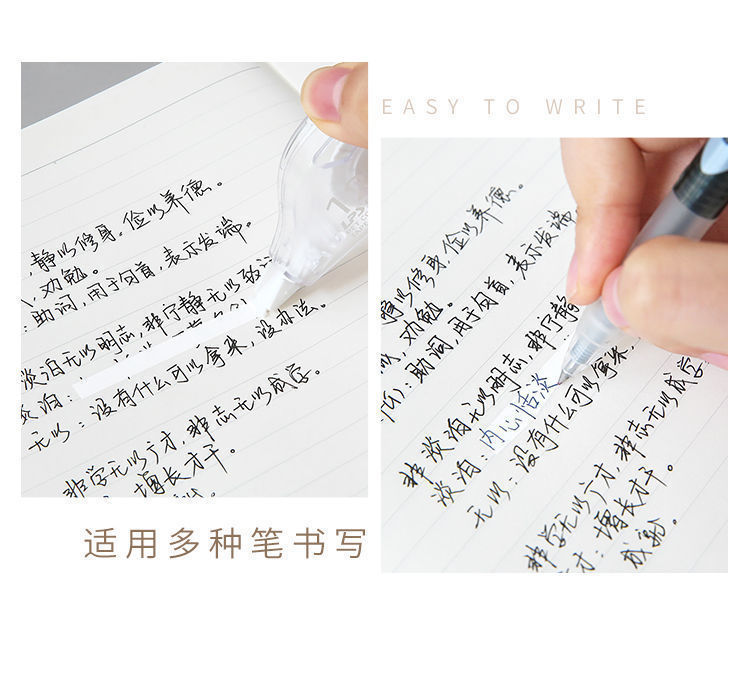 ，静以修身，俭以养德。
，劝勉。
：助词，用于句首，表示发端。
淡泊无以明志，非宁静无以致
淡泊：
无以：没有什么可以拿来，没办法。
非学无以广才，非志无以成学。
：增长才干。
适用多种笔书写
EASY TO WRITE
静以修身，俭以养德。
，劝勉。
：助词，用于句首，表示发端
非淡泊无以明志，非宁静
淡泊：内心恬淡
无以：没有什么可以拿来，
非学无以广才，非志无以成学。
才：增长才干。
成就。